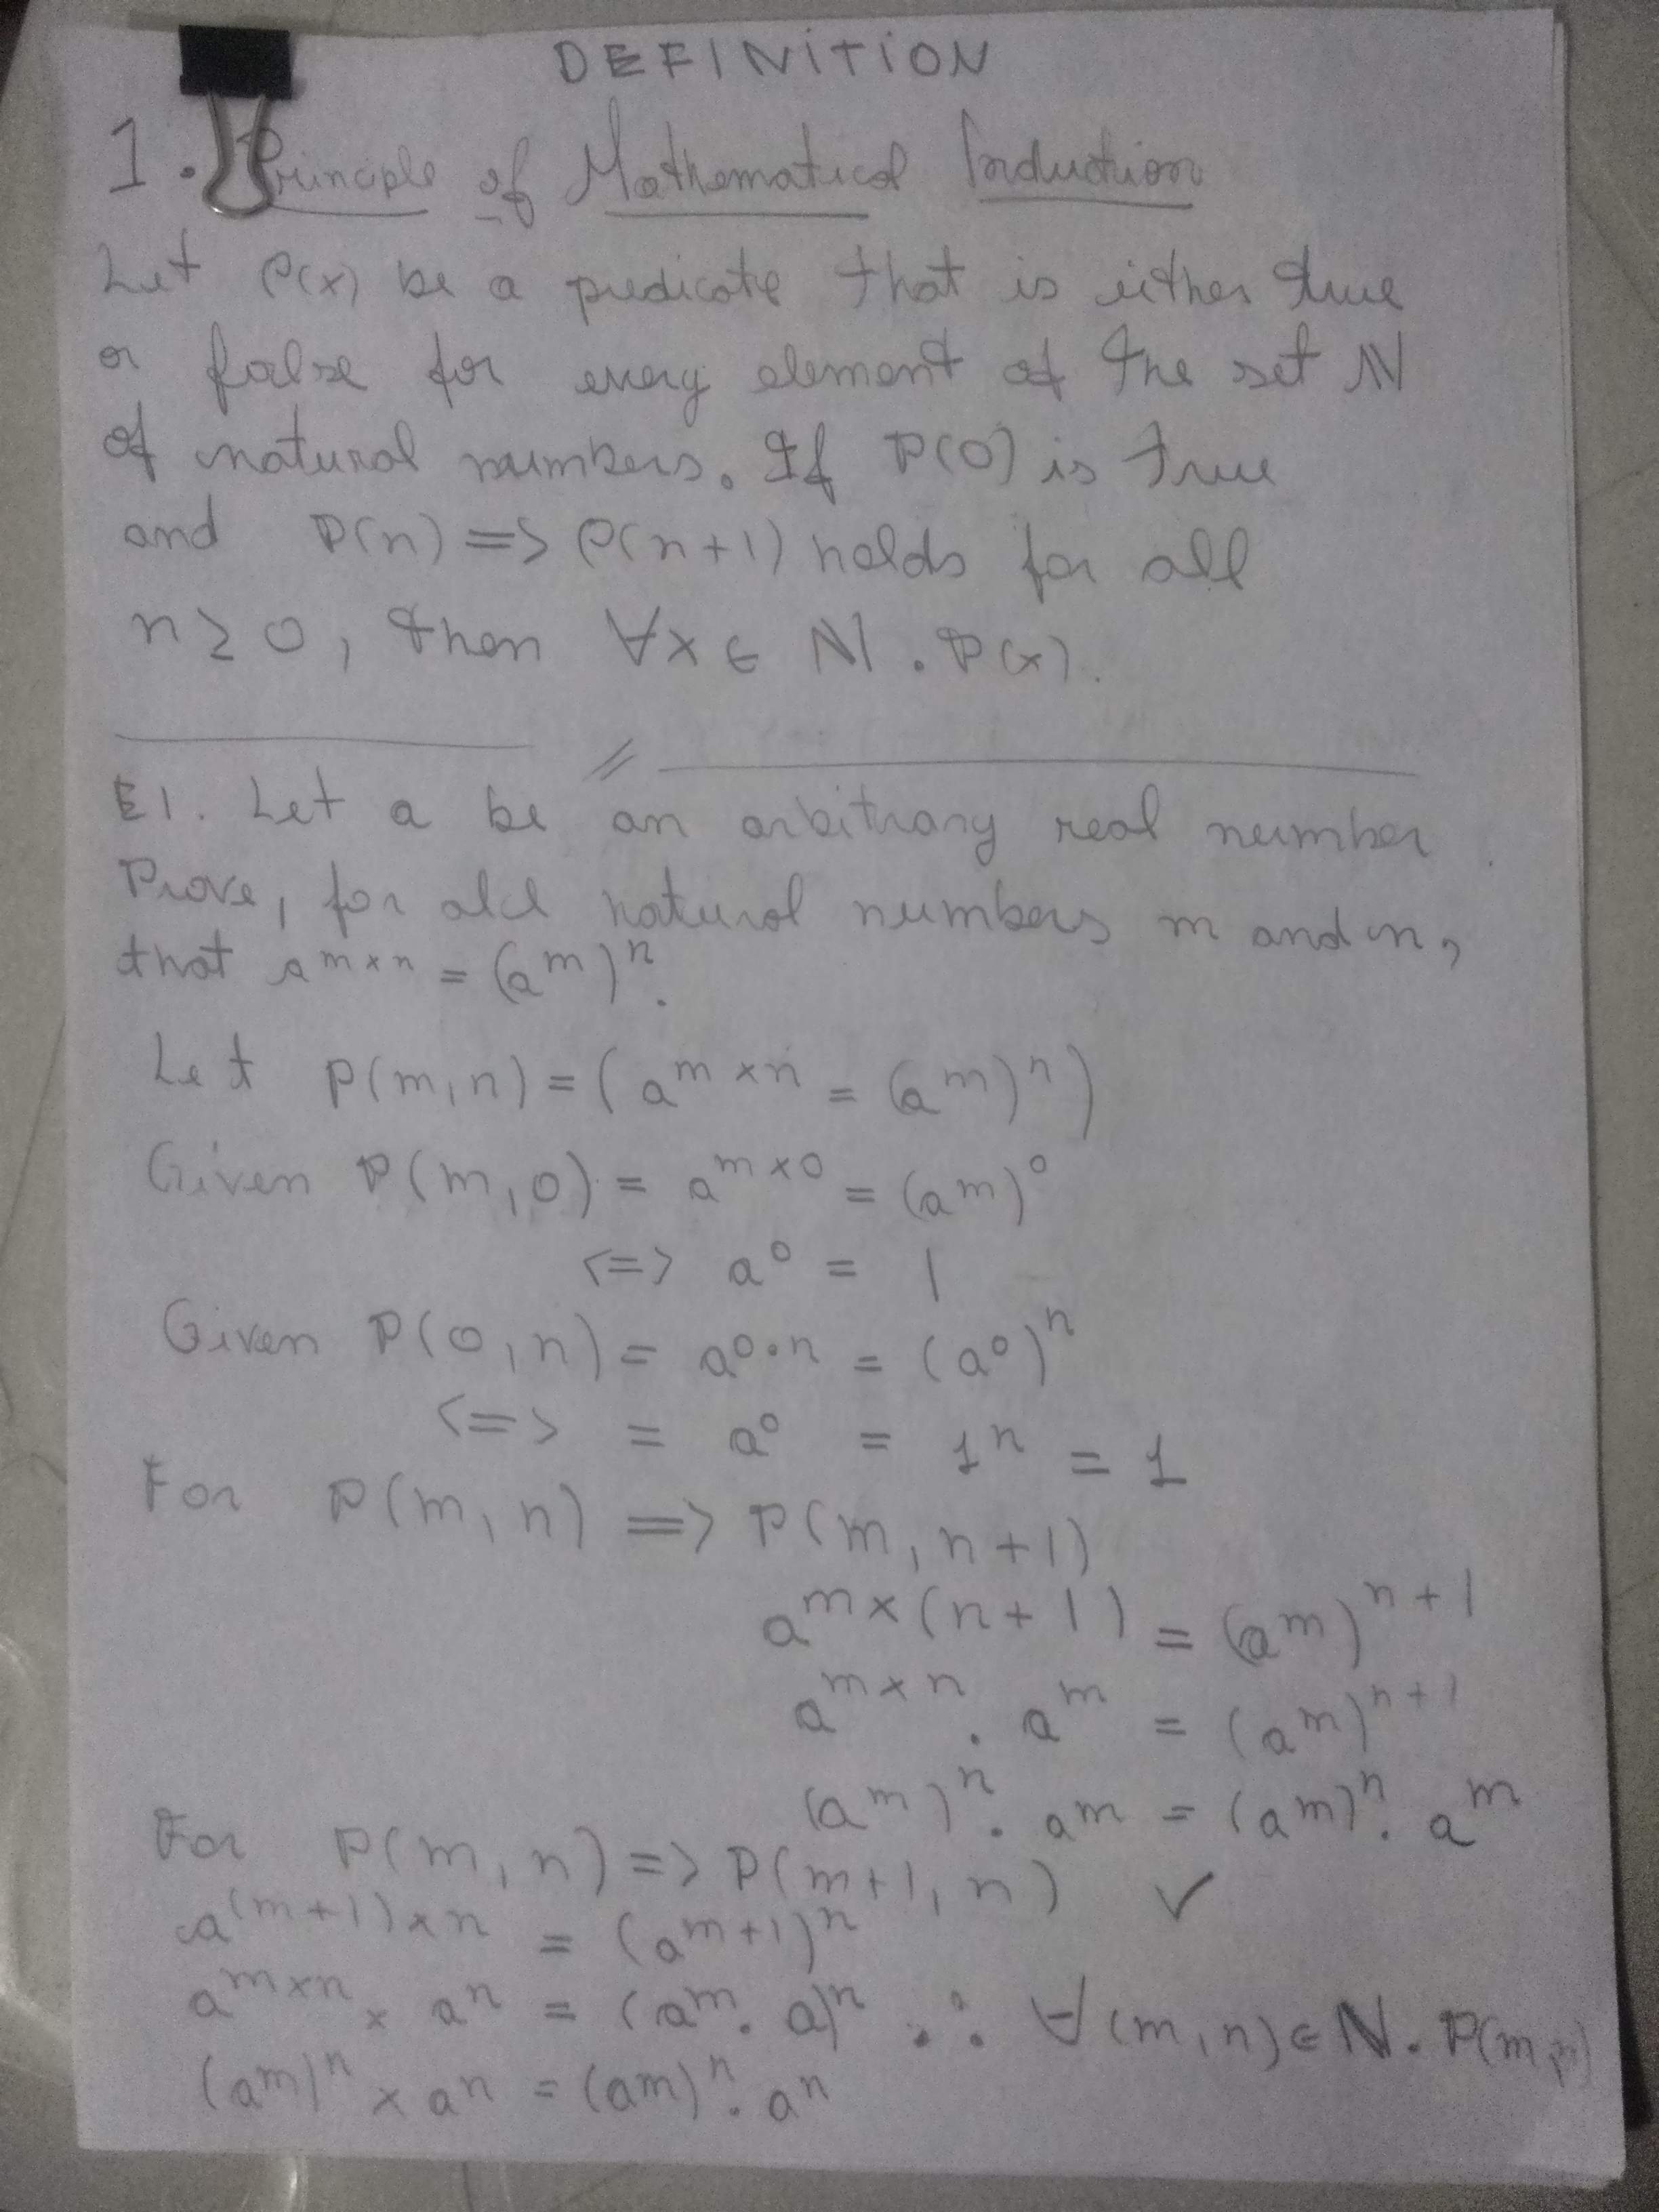 DEFINITION
1. Principle of Mathematical Induction
Let P(x) be a predicate that is either true
or false for every element of the set ℕ
of natural numbers. If P(0) is true
and P(n) => P(n+1) holds for all
n ≥ 0, then ∀x ∈ ℕ . P(x).
E1. Let a be an arbitrary real number.
Prove, for all natural numbers m and n,
that a^(m×n) = (a^m)^n.
Let P(m,n) = (a^(m×n) = (a^m)^n)
Given P(m,0) = a^(m×0) = (a^m)^0
<=> a^0 = 1
Given P(0,n) = a^(0·n) = (a^0)^n
<=> = a^0 = 1^n = 1
For P(m,n) => P(m,n+1)
a^(m×(n+1)) = (a^m)^(n+1)
a^(m×n) . a^m = (a^m)^(n+1)
(a^m)^n . a^m = (a^m)^n . a^m
For P(m,n) => P(m+1,n) ✓
a^((m+1)×n) = (a^(m+1))^n
a^(m×n) × a^n = (a^m . a)^n ∴ ∀(m,n) ∈ ℕ . P(m,n)
(a^m)^n × a^n = (a^m)^n . a^n